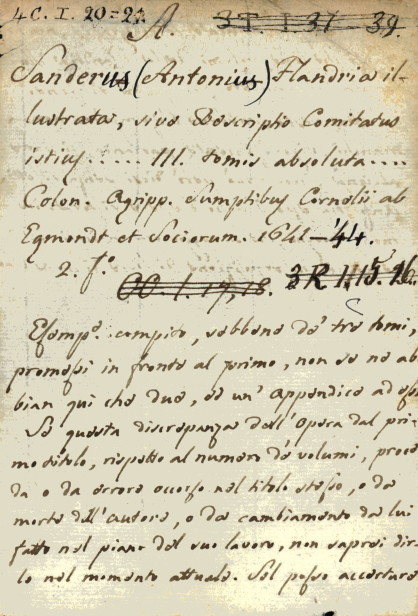 4 C. I. 20=21. A. 3T. I. 37 39.
Sanderus (Antonius) Flandria il-
lustrata, sive Descriptio Comitatus
istius ..... III. tomis absoluta ....
Colon. Agripp. Sumptibus Cornelii ab
Egmondt et Sociorum. 1641-'44.
2. f.° CC. I. 17, 18. 3 R I. 15. 16.
Esemp.e compito, sebbene de' tre tomi,
promessi in fronte al primo, non se ne ab
bian qui che due, ed un' appendice ad
Se questa discrepanza dell'Opera dal pri-
mo titolo, rispetto al numero de' volumi, proce
da o da errore occorso nel titolo stesso, o da
morte dell'autore, o da cambiamento da lui
fatto nel piano del suo lavoro, non saprei dir
lo nel momento attuale. Sol posso accertare